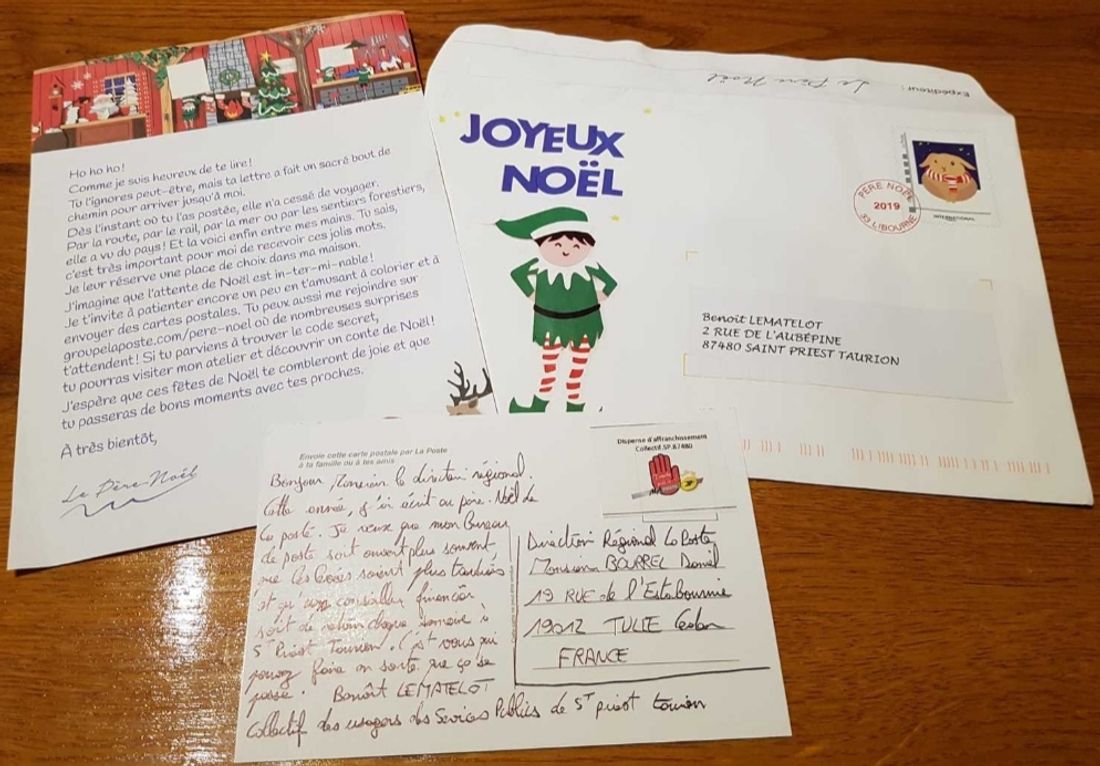 Ho ho ho!
Comme je suis heureux de te lire!
Tu l'ignores peut-être, mais ta lettre a fait un sacré bout de
chemin pour arriver jusqu'à moi.
Dès l'instant où tu l'as postée, elle n'a cessé de voyager.
Par la route, par le rail, par la mer ou par les sentiers forestiers,
elle a vu du pays! Et la voici enfin entre mes mains. Tu sais,
c'est très important pour moi de recevoir ces jolis mots.
Je leur réserve une place de choix dans ma maison.
J'imagine que l'attente de Noël est in-ter-mi-nable!
Je t'invite à patienter encore un peu en t'amusant à colorier et à
envoyer des cartes postales. Tu peux aussi me rejoindre sur
groupelaposte.com/pere-noel où de nombreuses surprises
t'attendent! Si tu parviens à trouver le code secret,
tu pourras visiter mon atelier et découvrir un conte de Noël!
J'espère que ces fêtes de Noël te combleront de joie et que
tu passeras de bons moments avec tes proches.
À très bientôt,
Le Père-Noël
Expéditeur :
Le Père Noël
JOYEUX
NOËL
PÈRE NOËL
2019
33 LIBOURNE
INTERNATIONAL
Benoît LEMATELOT
2 RUE DE L'AUBÉPINE
87480 SAINT PRIEST TAURION
Envoie cette carte postale par La Poste
à ta famille ou à tes amis
Dispense d'affranchissement
Collectif.SP.87480
Bonjour Monsieur le directeur régional.
Cette année, j'ai écrit au père-Noël de
la poste. Je veux que mon bureau
de poste soit ouvert plus souvent,
que les levées soient plus tardives
et qu'un conseiller financier
soit de retour chaque semaine à
St Priest Taurion. C'est vous qui
pouvez faire en sorte que ça se
passe. Benoît LEMATELOT
Collectif des usagers des Services Publics de St priest taurion
Direction Régional La Poste
Monsieur BOURREL Daniel
19 RUE de l'Estabournie
19012 TULLE Cedex
FRANCE